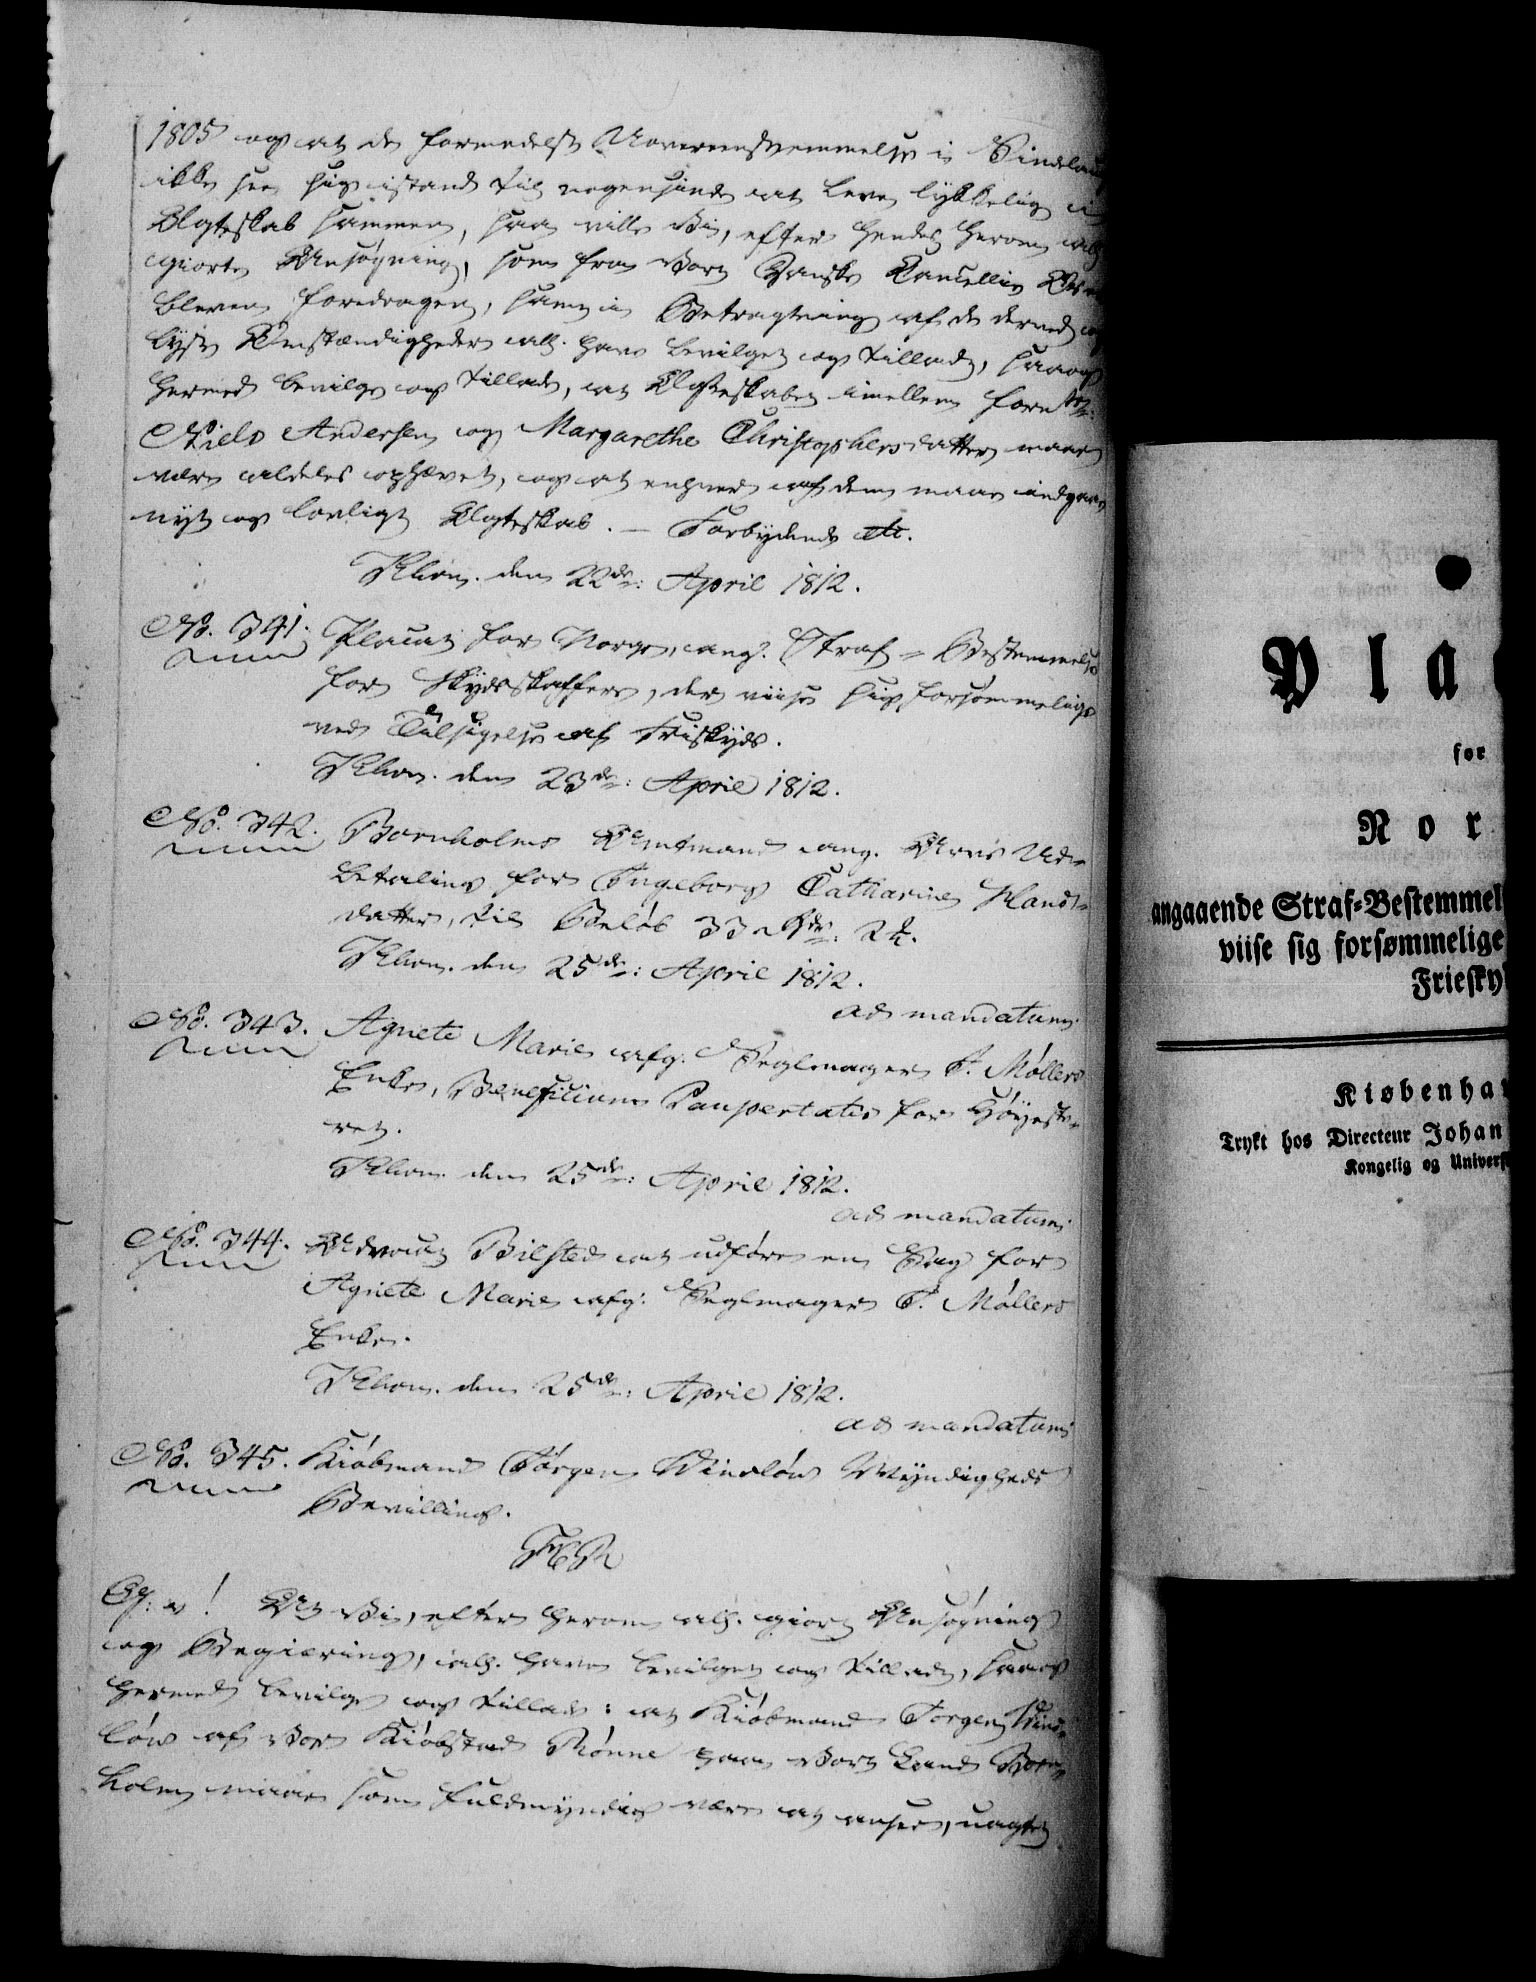 1805 og at de formedelst Uovereensstemmelse i Sindelaug
ikke see sig istand til nogensinde at leve lykkelig i
Ægteskab sammen, saa ville Vi, efter hendes herom all.
giorte Ansøgning, som fra Vort Danske Cancellie er
bleven foredragen, samt i Betragtning af de derved op-
lyste Omstændigheder all. have bevilget og tilladt, saaog
hermed bevilge og tillade, at Ægteskabet imellem forn.te
Niels Andersen og Margarethe Christophersdatter maae
være aldeles ophævet, og at enhver af dem maae indgaae
nyt og lovligt Ægteskab. — Forbydende etc.
Khavn. den 22de: April 1812.
No. 341. Placat for Norge, ang. Straf-Bestemmelse
for Skydsskaffere, der viise sig forsømmelige
ved Tilsigelse af Frieskyds.
Khavn. den 23de: April 1812.
No. 342. Bornholms Amtmand ang. Arvs Ud-
betaling for Ingeborg Cathrine Hans-
datter, til Beløb 33 Rdr: 2 ß.
Khavn. den 25de: April 1812.
ad mandatum
No. 343. Agnete Marie afg. Seglmager P. Møllers
Enke, Beneficium Paupertatis for Høyeste-
ret.
Khavn. den 25de: April 1812.
ad mandatum
No. 344. Advocat Bilsted at udføre en Sag for
Agnete Marie afg: Seglmager P. Møllers
Enke.
Khavn. den 25de: April 1812.
ad mandatum
No. 345. Kiøbmand Jørgen Windløws Myndigheds
Bevilling.
G: v! At Vi, efter herom all. giort Ansøgning
og Begiering, all. have bevilget og tilladt, saaog
hermed bevilge og tillade: at Kiøbmand Jørgen Wind-
løw af Vor Kiøbstad Rønne paa Vort Land Born-
holm maae som fuldmyndig være at ansee, uagtet
Pla
for
Nor
angaaende Straf-Bestemmel
viise sig forsømmelige
Friesky
Kiøbenha
Trykt hos Directeur Johan
Kongelig og Univers